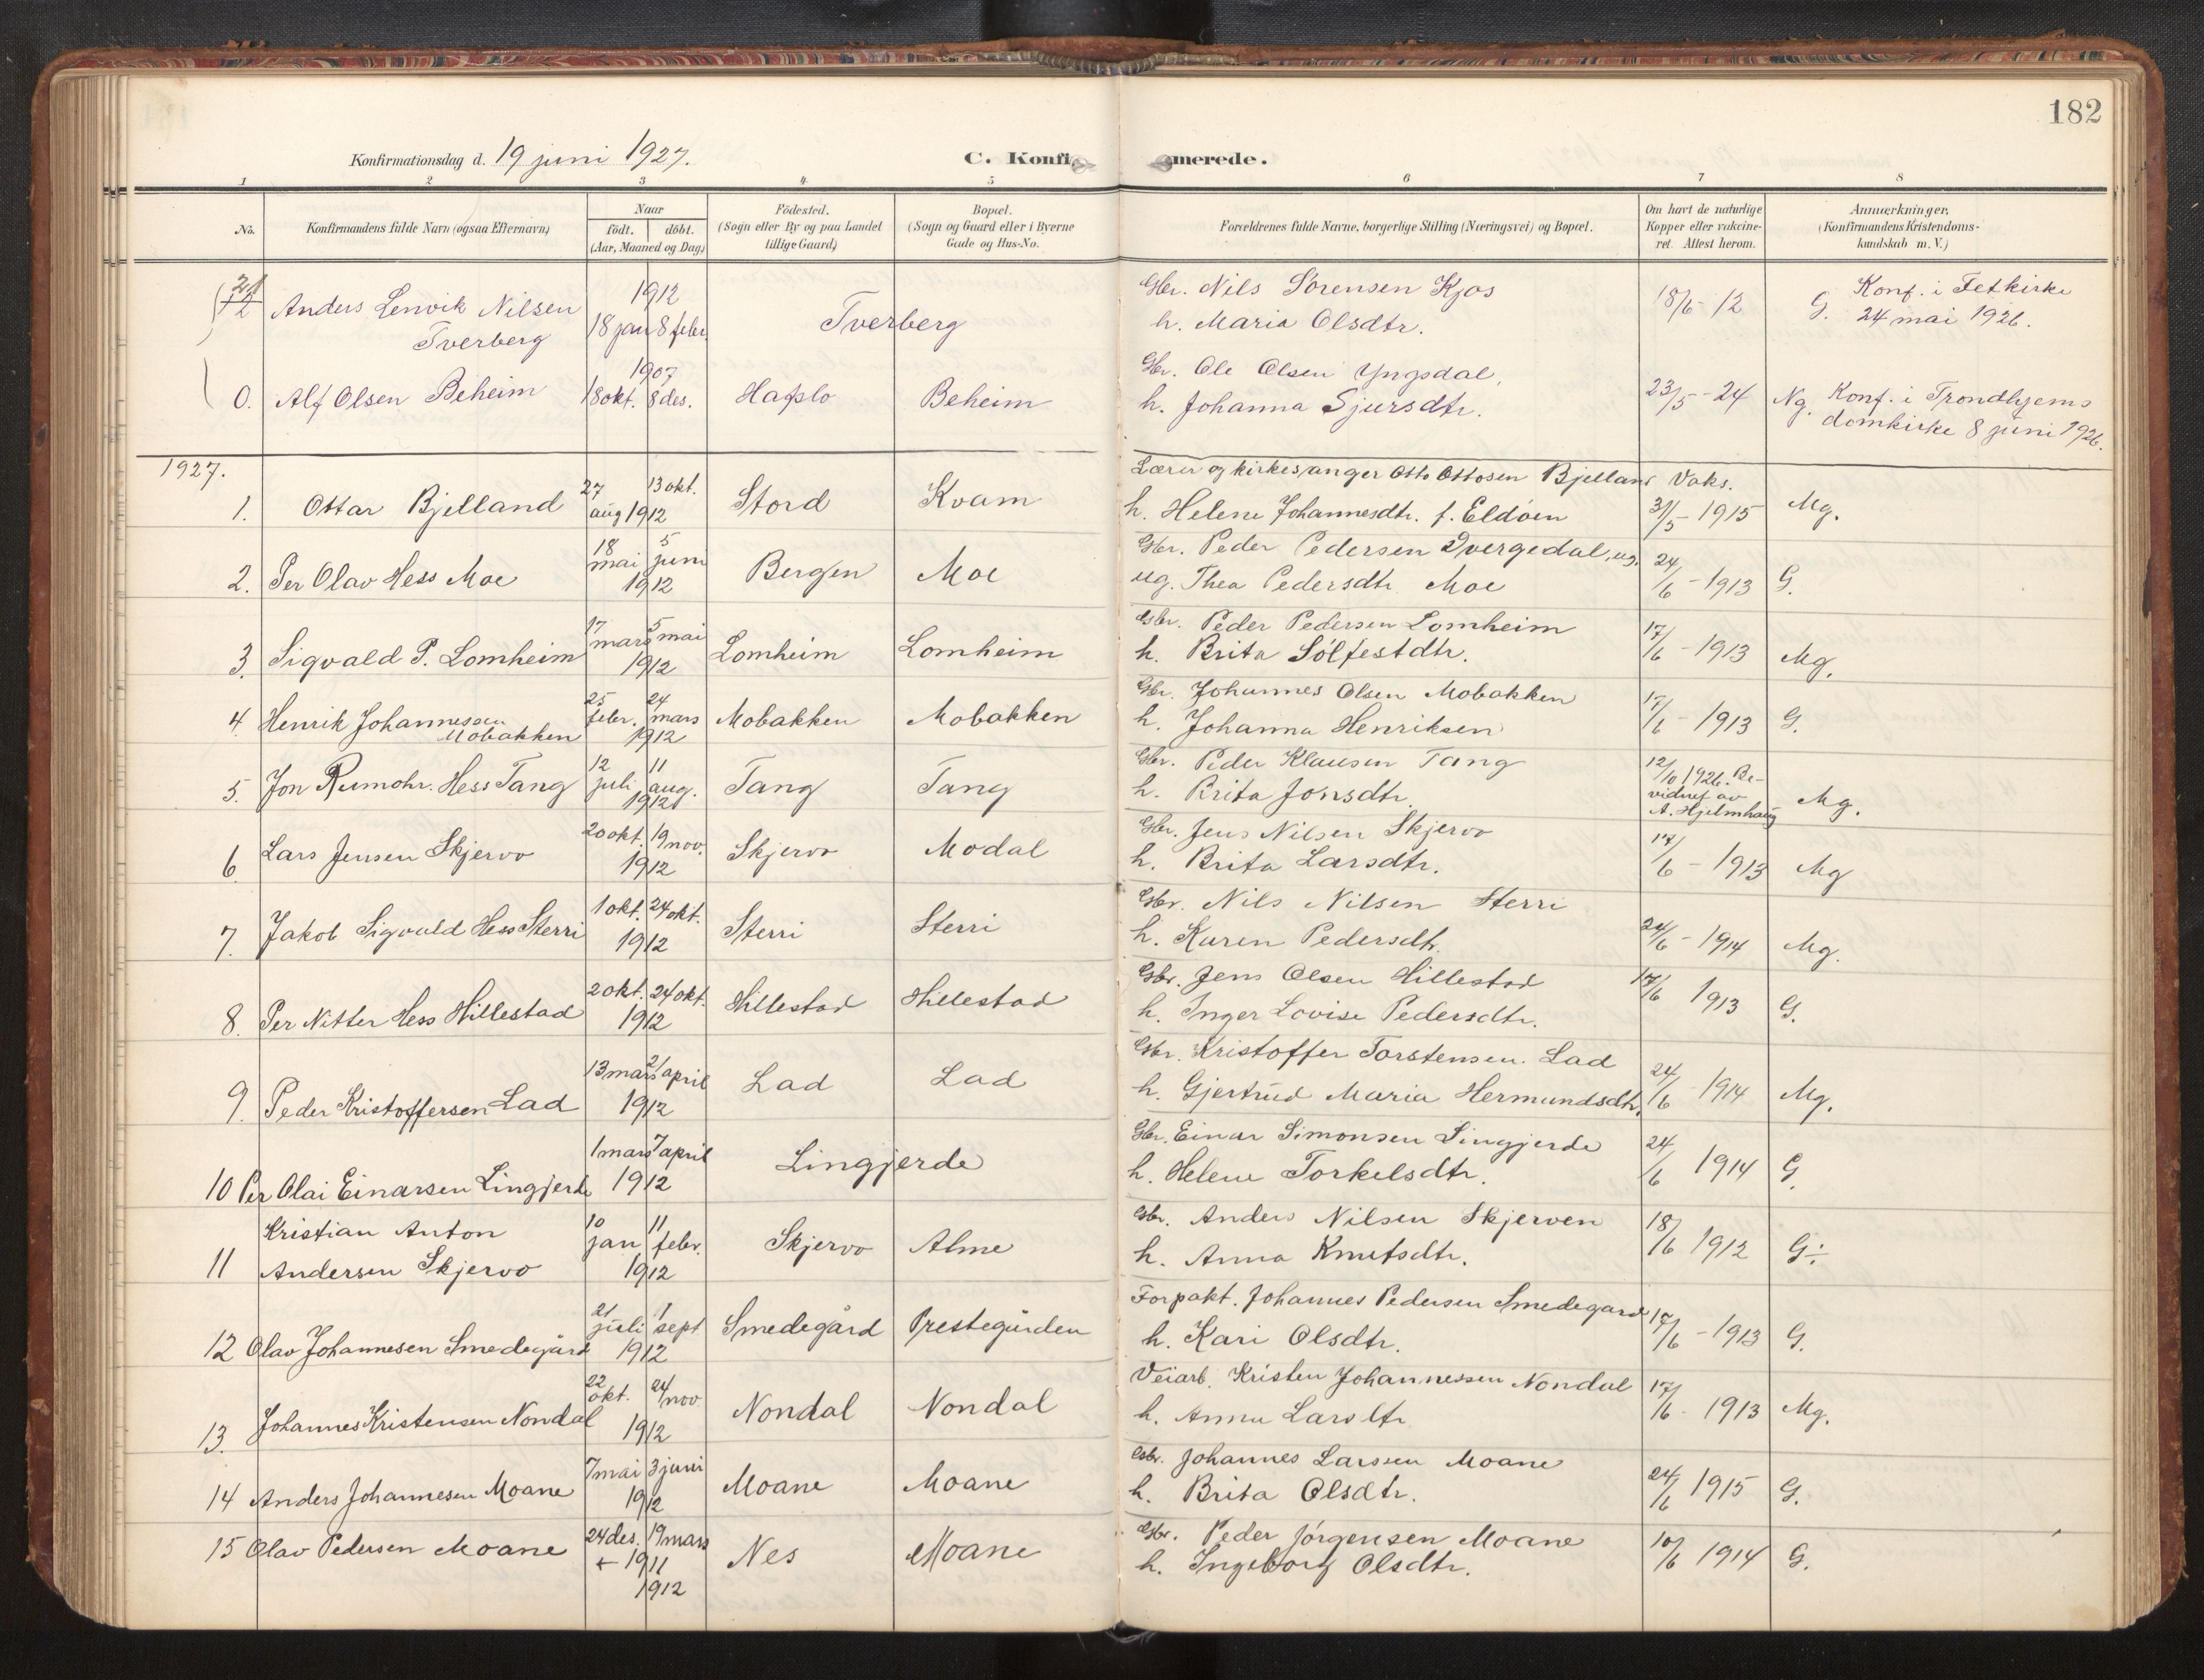 182
Konfirmationsdag d. 19 juni 1927.
C. Konfirmerede.
1 2 3 4 5 6 7 8
No.
Konfirmandens fulde Navn (ogsaa Efternavn)
Naar
født. døbt.
(Aar, Maaned og Dag)
Fødested.
(Sogn eller By og paa Landet
tillige Gaard)
Bopæl.
(Sogn og Gaard eller i Byerne
Gade og Hus-No.
Forældrenes fulde Navne, borgerlige Stilling (Næringsvei) og Bopæl.
Om havt de naturlige
Kopper eller vakcine-
ret. Attest herom.
Anmærkninger.
(Konfirmandens Kristendoms-
kundskab m. V.)
Anders Lenvik Nilsen
Tverberg
1912
18 jan 8 febr.
Tverberg
Gbr. Nils Sørensen Kjos
h. Maria Olsdtr.
18/6 - 12
G. Konf. i Fet kirke
24 mai 1926.
0. Alf Olsen Beheim
1907
18 okt. 8 des.
Hafslo
Beheim
Gbr. Ole Olsen Yngsdal,
h. Johanna Sjursdtr.
23/5 - 24
Ng. Konf. i Trondhjems
domkirke 8 juni 1926.
1927.
1. Ottar Bjelland
27 13 okt.
aug 1912
Stord
Kvam
Lærer og kirkesanger Otto Ottosen Bjelland
h. Helene Johannesdtr. f. Eldøen
Vaks.
31/5 - 1915
Mg.
2. Per Olav Hess Moe
18 5
mai juni
1912
Bergen
Moe
Gbr. Peder Pedersen Dvergedal, ug.
ug. Thea Pedersdtr. Moe
24/6 - 1913
G.
3. Sigvald P. Lomheim
17 5
mars mai
1912
Lomheim
Lomheim
Gbr. Peder Pedersen Lomheim
h. Brita Sølfestdtr.
17/6 - 1913
Mg.
4 Henrik Johannessen
Mobakken
25 24
febr. mars
1912
Mobakken
Mobakken
Gbr. Johannes Olsen Mobakken
h. Johanna Henriksen
17/6 - 1913
G.
5. Jon Rumohr. Hess Tang
12 11
juli aug.
1912
Tang
Tang
Gbr. Peder Klausen Tang
h. Brita Jonsdtr.
12/10 1926. Be-
vidnet av
A. Hjelmhaug
Mg.
6 Lars Jensen Skjervo
20 okt. 19 nov.
1912
Skjervo
Modal
Gbr. Jens Nilsen Skjervo
h. Brita Larsdtr.
17/6 - 1913
Mg
7. Jakob Sigvald Hess Sterri
1 okt. 24 okt.
1912
Sterri
Sterri
Gbr. Nils Nilsen Sterri
h. Karen Pedersdtr.
24/6 - 1914
Mg.
8. Per Nitter Hess Hillestad
2 okt. 24 okt.
1912
Hillestad
Hillestad
Gbr. Jens Olsen Hillestad
h. Inger Lovise Pedersdtr.
17/6 1913
G.
9. Peder Kristoffersen Lad
13 mars 21 april
1912
Lad
Lad
Gbr. Kristoffer Torstensen. Lad
h. Gjertrud Maria Hermundsdtr.
24/6 1914
Mg.
10 Per Olai Einarsen Lingjerde
1 mars 7 april
1912
Lingjerde
Gbr. Einar Simonsen Lingjerde
h. Helene Torkelsdtr.
24/6 1914
G.
11 Kristian Anton
Andersen Skjervo
10 11
jan febr.
1912
Skjervo
Alme
Gbr. Anders Nilsen Skjerven
h. Anna Knutsdtr.
18/6 1912
G÷
12 Olav Johannesen Smedegård
21 1
juli sept
1912
Smedegård
Prestegården
Forpakt. Johannes Pedersen Smedegard
h. Kari Olsdtr.
17/6 - 1913
G.
13. Johannes Kristensen Nondal
22 24
okt. nov.
1912
Nondal
Nondal
Veiarb. Kristen Johannessen Nondal
h. Anna Larsdtr
17/6 - 1913
Mg.
14 Anders Johannesen Moane
7 mai 3 juni
1912
Moane
Moane
Gbr. Johannes Larssen Moane
h. Brita Olsdtr.
24/6 1915
G.
15 Olav Pedersen Moane
24 des. 19 mars
1911
1912
Nes
Moane
Gbr. Peder Jørgensen Moane
h. Ingeborg Olsdtr.
10/6 1914
G.